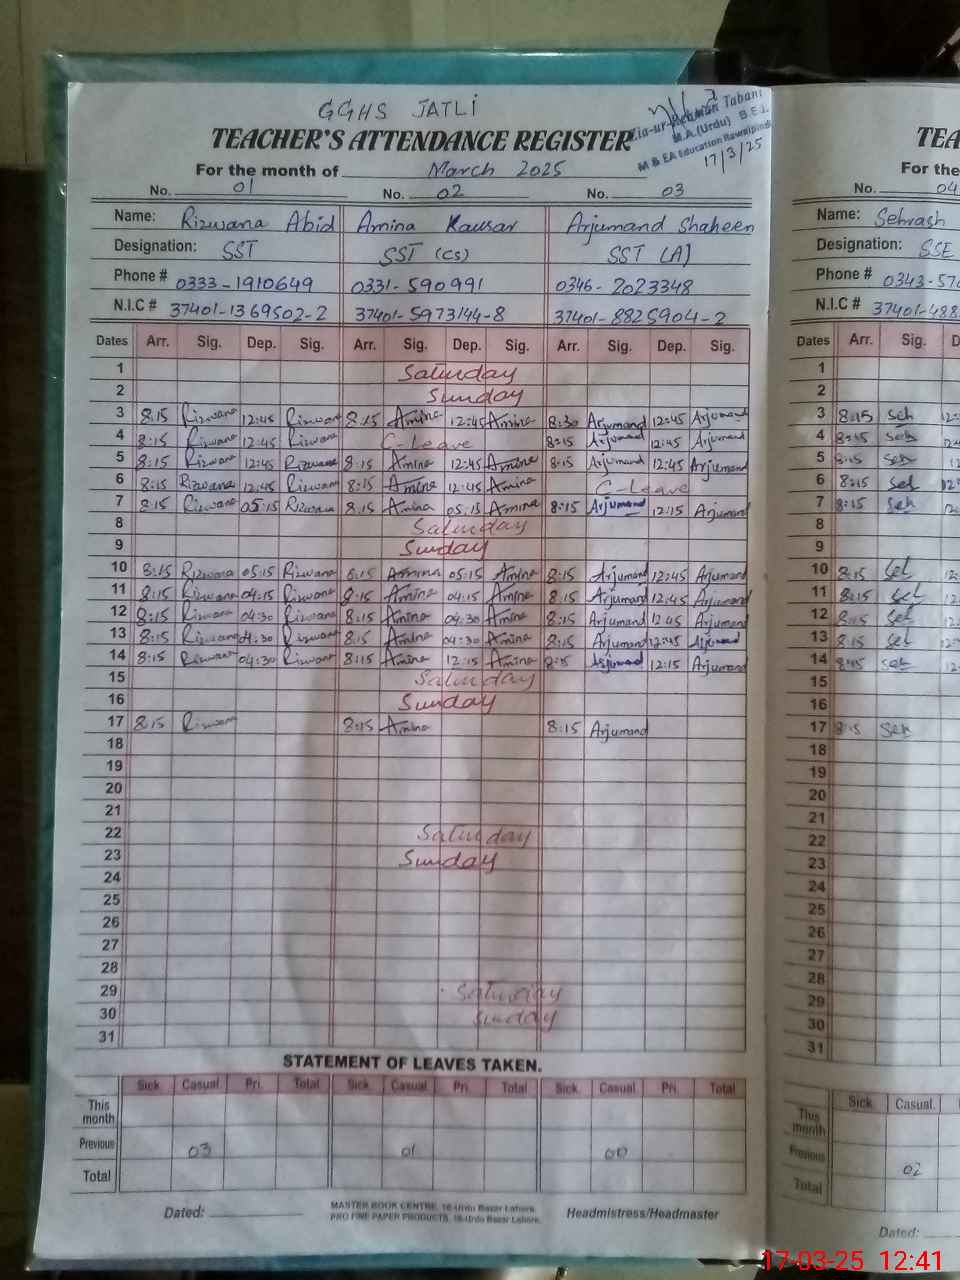 GGHS JATLi
TEACHER'S ATTENDANCE REGISTER
Zia-ur-Rehman Tabani
M.A.(Urdu) B.E.d.
M & EA Education Rawalpindi
17/3/25
For the month of March 2025
No. 01 No. 02 No. 03
Name: Rizwana Abid Amina Kausar Arjumand Shaheen
Designation: SST SST (CS) SST (A)
Phone # 0333-1910649 0331-590991 0346-2023348
N.I.C # 37401-1369502-2 37401-5973144-8 37401-8825904-2
Dates Arr. Sig. Dep. Sig. Arr. Sig. Dep. Sig. Arr. Sig. Dep. Sig.
1 Saturday
2 Sunday
3 8:15 Rizwana 12:45 Rizwana 8:15 Amina 12:45 Amina 8:30 Arjumand 12:45 Arjumand
4 8:15 Rizwana 12:45 Rizwana C-Leave 8:15 Arjumand 12:45 Arjumand
5 8:15 Rizwana 12:45 Rizwana 8:15 Amina 12:45 Amina 8:15 Arjumand 12:45 Arjumand
6 8:15 Rizwana 12:45 Rizwana 8:15 Amina 12:45 Amina C-Leave
7 8:15 Rizwana 05:15 Rizwana 8:15 Amina 05:15 Amina 8:15 Arjumand 12:15 Arjumand
8 Saturday
9 Sunday
10 8:15 Rizwana 05:15 Rizwana 8:15 Amina 05:15 Amina 8:15 Arjumand 12:45 Arjumand
11 8:15 Rizwana 04:15 Rizwana 8:15 Amina 04:15 Amina 8:15 Arjumand 12:45 Arjumand
12 8:15 Rizwana 04:30 Rizwana 8:15 Amina 04:30 Amina 8:15 Arjumand 12:45 Arjumand
13 8:15 Rizwana 04:30 Rizwana 8:15 Amina 04:30 Amina 8:15 Arjumand 12:45 Arjumand
14 8:15 Rizwana 04:30 Rizwana 8:15 Amina 12:15 Amina 8:15 Arjumand 12:15 Arjumand
15 Saturday
16 Sunday
17 8:15 Rizwana 8:15 Amina 8:15 Arjumand
18
19
20
21
22 Saturday
23 Sunday
24
25
26
27
28
29 Saturday
30 Sunday
31
STATEMENT OF LEAVES TAKEN.
Sick Casual Pri. Total Sick. Casual Pri. Total Sick. Casual Pri. Total
This month
Previous 03 01 00
Total
Dated:
MASTER BOOK CENTRE, 16-Urdu Bazar Lahore.
PRO FINE PAPER PRODUCTS, 16-Urdu Bazar Lahore.
Headmistress/Headmaster
TEA
For the
No. 04
Name: Sehrash
Designation: SSE
Phone # 0343-570
N.I.C # 37401-488
Dates Arr. Sig. D
1
2
3 8:15 Seh 12:
4 8:15 Seh 12
5 8:15 Seh 12
6 8:15 Seh 12:
7 8:15 Seh 12:
8
9
10 8:15 Seh 12:
11 8:15 Seh 12:
12 8:15 Seh 12:
13 8:15 Seh 12:
14 8:15 Seh 12:
15
16
17 8:15 Seh
18
19
20
21
22
23
24
25
26
27
28
29
30
31
Sick Casual.
This month
Previous 02
Total
Dated:
17-03-25 12:41